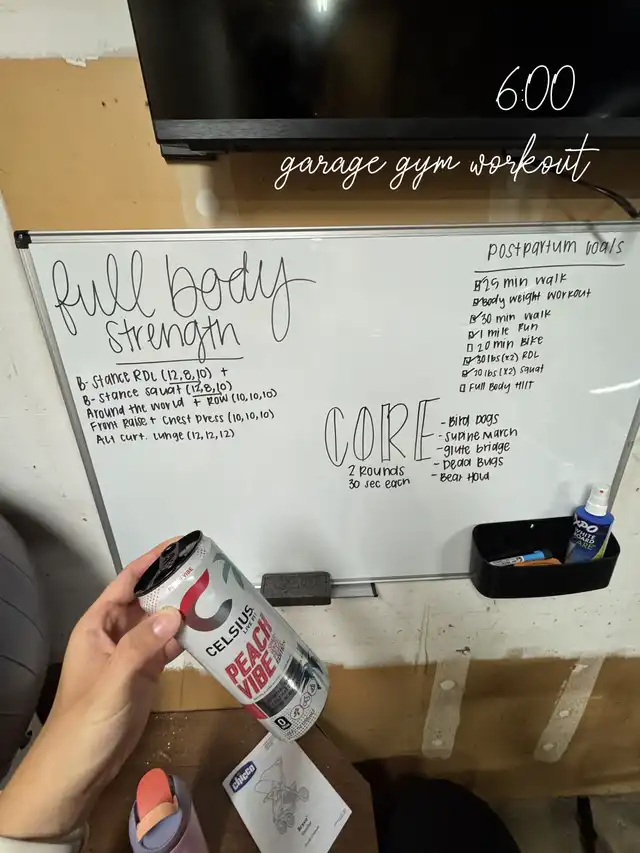 6:00
garage gym workout
full body
strength
B-stance RDL (12,8,10) +
B-stance squat (12,8,10)
Around the world + Row (10,10,10)
Front Raise + Chest Press (10,10,10)
Alt Curt. Lunge (12,12,12)
postpartum Goals
25 min walk
Body weight workout
30 min walk
1 mile run
20 min Bike
30lbs (x2) RDL
20lbs (x2) squat
Full Body HIIT
CORE
2 Rounds
30 sec each
- Bird Dogs
- supine march
- glute bridge
- Dead Bugs
- Bear Hold
EXPO
WHITE
BOARD
CARE
CELSIUS
LIVE FIT
PEACH
VIBE
chicco